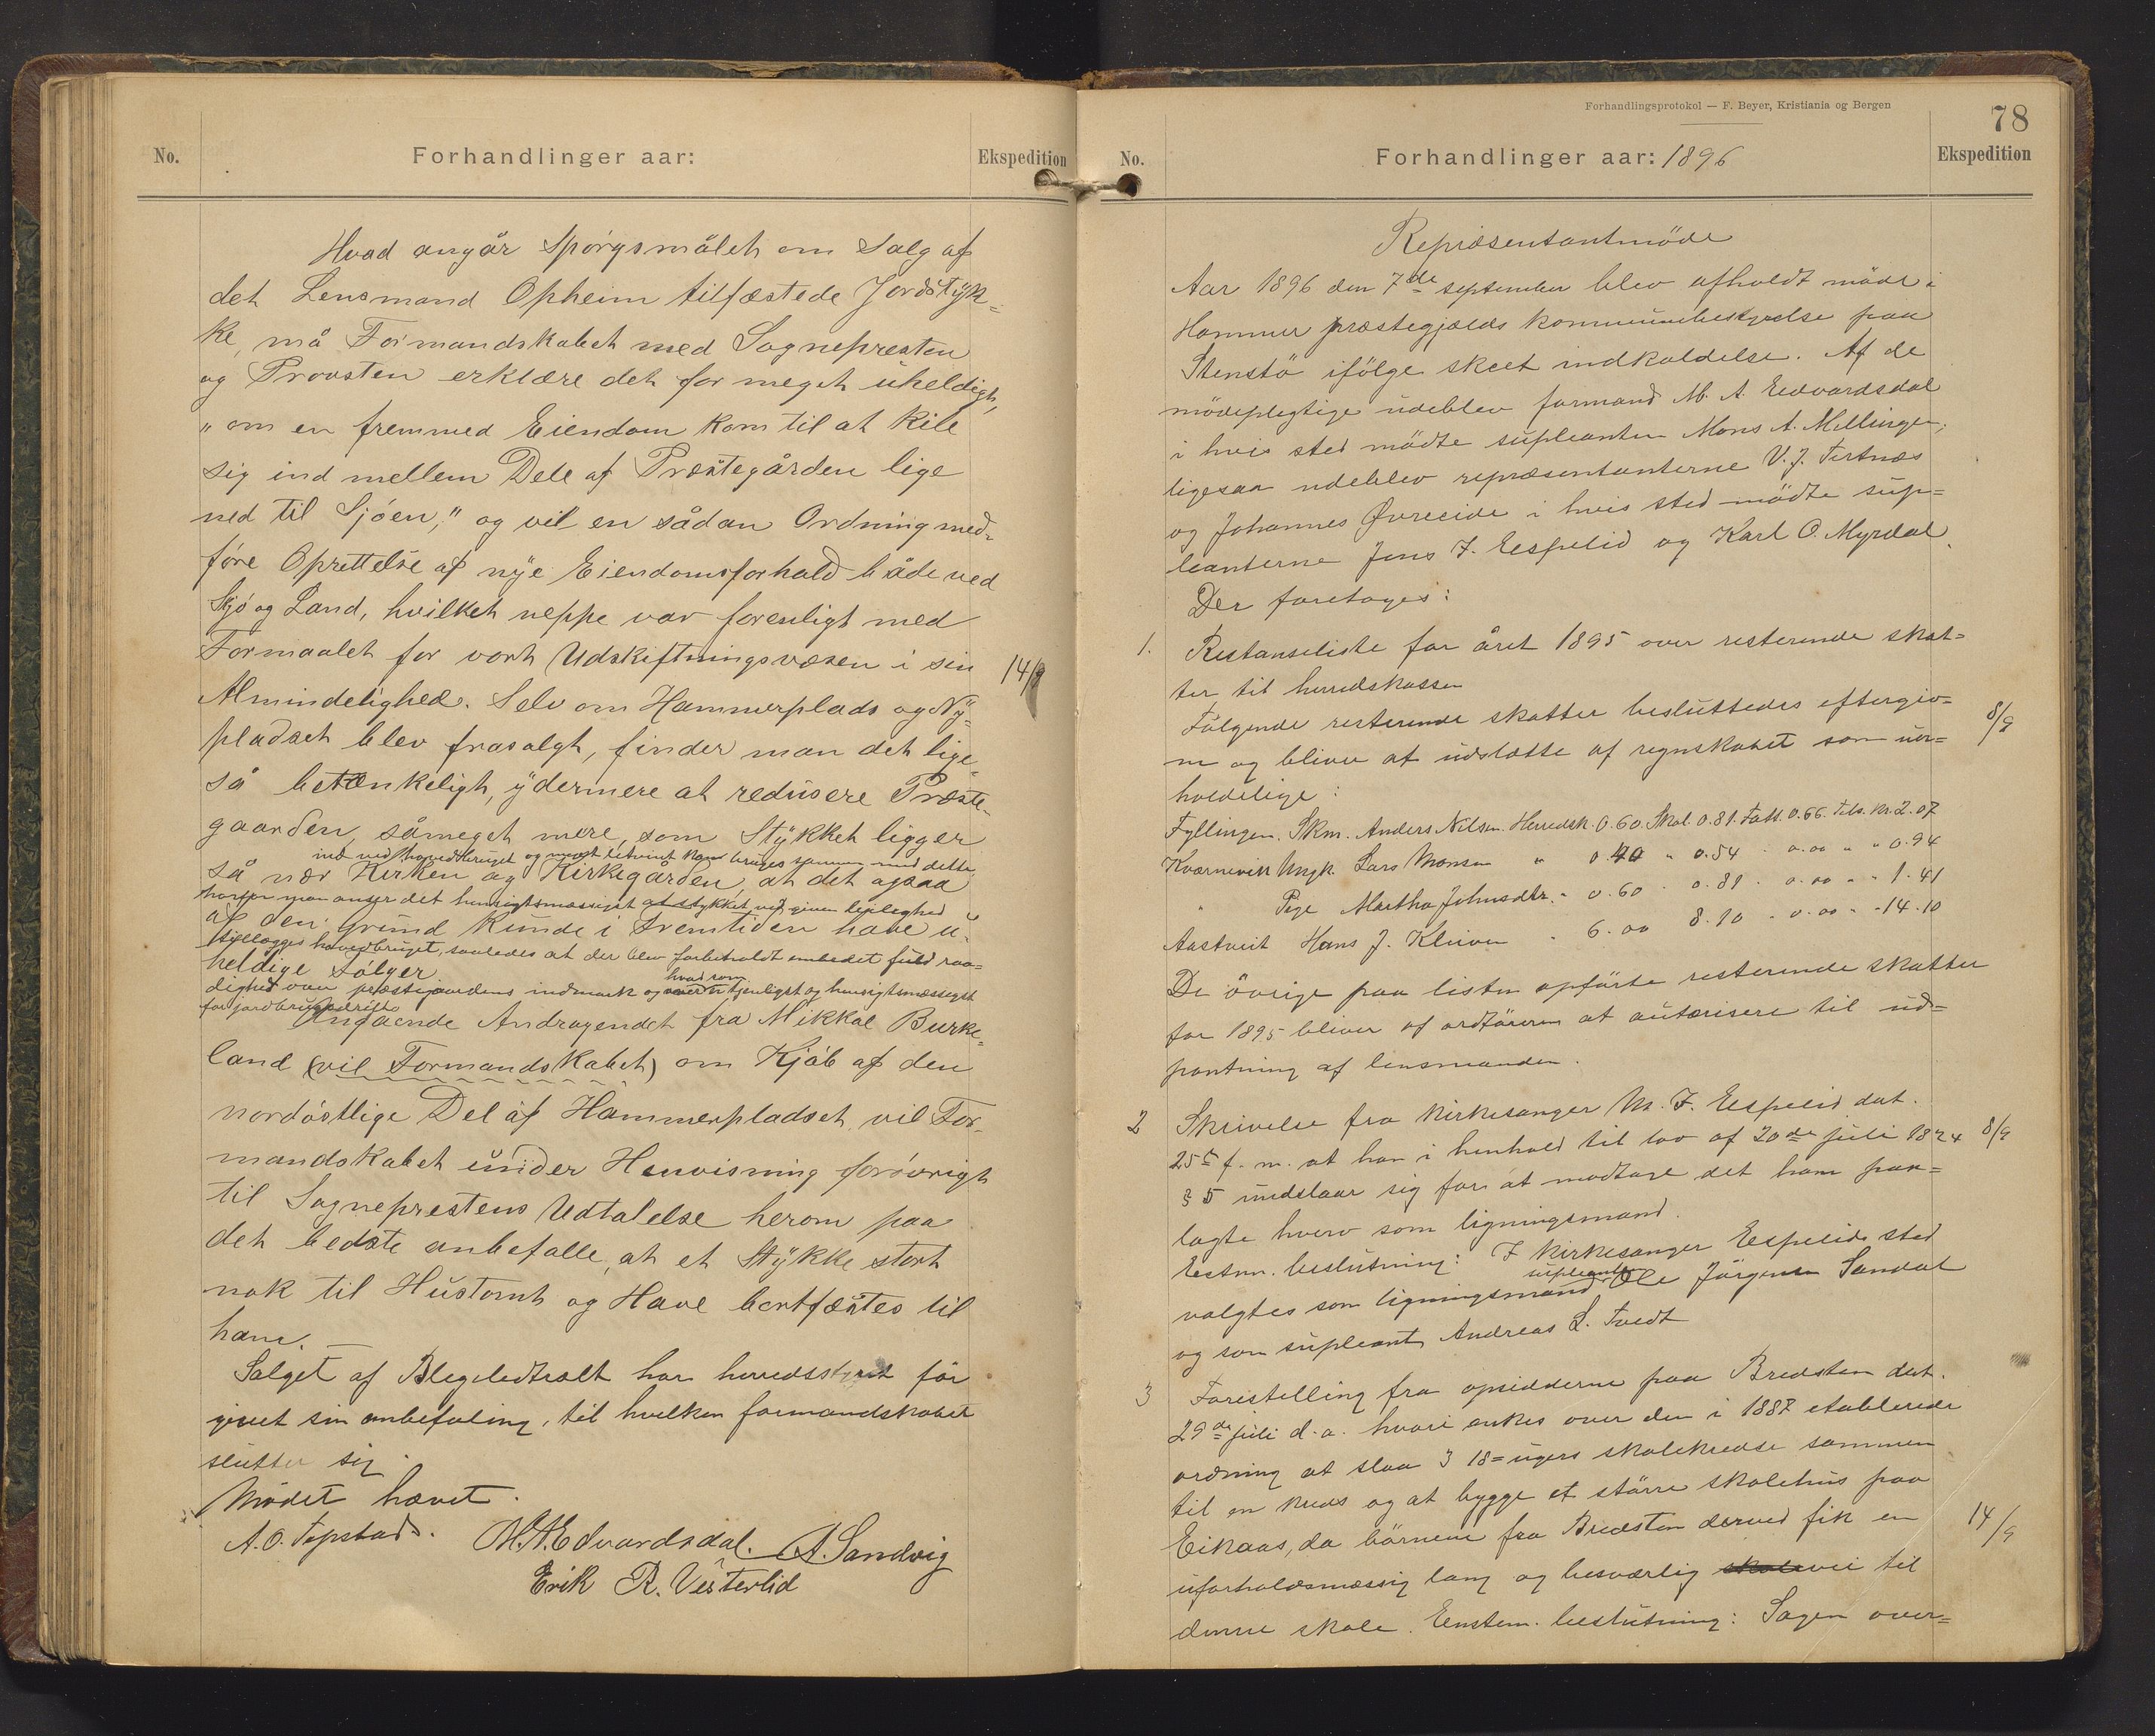 No.
Forhandlinger aar:
Ekspedition
Hvad angår Spörgsmålet om Salg af
det Lensmand Opheim tilfæstede Jordstyk-
ke, må Formandskabet med Sognepresten
og Provsten erklære det for meget uheldigt,
"om en fremmed Eiendom kom til at kile
sig ind mellem Dele af Præstegården lige
ned til Sjöen," og vil en sådan Ordning med-
före Oprettelse af nye Eiendomsforhold både ved
Sjö og Land, hvilket neppe var foreneligt med
Formaalet for vort Udskiftningsvæsen i sin
14/9
Almindelighed. Selv om Hammerplads og Ny-
pladset blev frasalgt, finder man det lige-
så betænkeligt, ydermere at redusere Præste-
gaarden, såmeget mere, som Stykket ligger
ind ved hovedbruget og mest letvint kan bruges sammen med dette
så nær Kirken og Kirkegården, at det ogsaa
hvorfor man anser det hensigtsmæssigst at stykket ved given leilighed
af den Grund kunde i Fremtiden have u-
tillægges hovedbruget, saaledes at der blev forbeholdt embedet fuld raa=
heldige Fölger.
dighed over præstegaardens indmark og hvad som er tjenligst og hensigtsmæssigst
for jordbrugsdrift.
Angaaende Andragendet fra Mikkal Burke-
land (vil Formandskabet) om Kjöb af den
nordöstlige Del af Hammerpladset, vil For-
mandskabet under Henvisning forövrigt
til Sogneprestens Udtalelse herom paa
det bedste anbefalle, at et Stykke stort
nok til Hustomt og Have bortfæstes til
ham. —
Salget af Blegeledtræltt har herredsstyret för
givet sin anbefaling, til hvilken formandskabet
slutter sig.
Mödet hævet.
A. O. Tepstad. M. A. Edvardsdal. A. Sandvig
Erik R. Vesterlid
Forhandlingsprotokol — F. Beyer, Kristiania og Bergen
78
No.
Forhandlinger aar: 1896
Ekspedition
Repræsentantmöde
Aar 1896 den 7de september blev afholdt möde i
Hammer præstegjælds kommunebestyrelse paa
Stenstö ifölge skeet indkaldelse. Af de
mödepligtige udeblev formand M. A. Eedvardsdal
i hvis sted mödte supleanten Mons A. Mellingen,
ligesaa udeblev repræsentanterne V. J. Tertnæs
og Johannes Øvreeide i hvis sted mödte sup=
leanterne Jens J. Eespelid og Karl O. Myrdal.
Der foretoges:
1. Restanseliste for året 1895 over resterende skat=
ter til herredskassen
Fölgende resterende skatter besluttedes eftergiv=
8/9
ne og bliver at udslætte af regnskabet som uer=
holdelige:
Fyllingen. Skm. Anders Nilsen. Herredsk. 0.60. Skol. 0.81. Fatt. 0.66. Tils. Kr. 2.07
Kværnevik Ungk. Lars Monsen " 0.40 " 0.54 " 0.00 " " 0.94
" Pige Martha Johnsdtr. " 0.60 " 0.81 " 0.00 " " 1.41
Aastveit Hans J. Kleiven " 6.00 8.10 " 0.00 " " 14.10
De övrige paa listen opförte resterende skatter
for 1895 bliver af ordföreren at autorisere til ud=
pantning af lensmanden.
2 Skrivelse fra kirkesanger M. J. Eespelid dat.
25de f. m. at han i henhold til lov af 20de juli 1824
8/9
§ 5 undslaar sig for at modtage det ham paa=
lagte hverv som ligningsmand.
Eestm. beslutning: I kirkesanger Eespelids sted
valgtes som ligningsmand supleanten Ole Jörgensen Sandal
og som supleant Andreas L. Tvedt
3 Forestelling fra opsidderne paa Bredsten dat.
29de juli d. a. hvori ankes over den i 1887 etablerede
ordning at slaa 3 18=ugers skolekredse sammen
til en kreds og at bygge et större skolehus paa
Eikaas, da börnene fra Bredsten derved fik en
14/9
uforholdsmæssig lang og besværlig skolevei til
denne skole. Eenstem. beslutning: Sagen over=